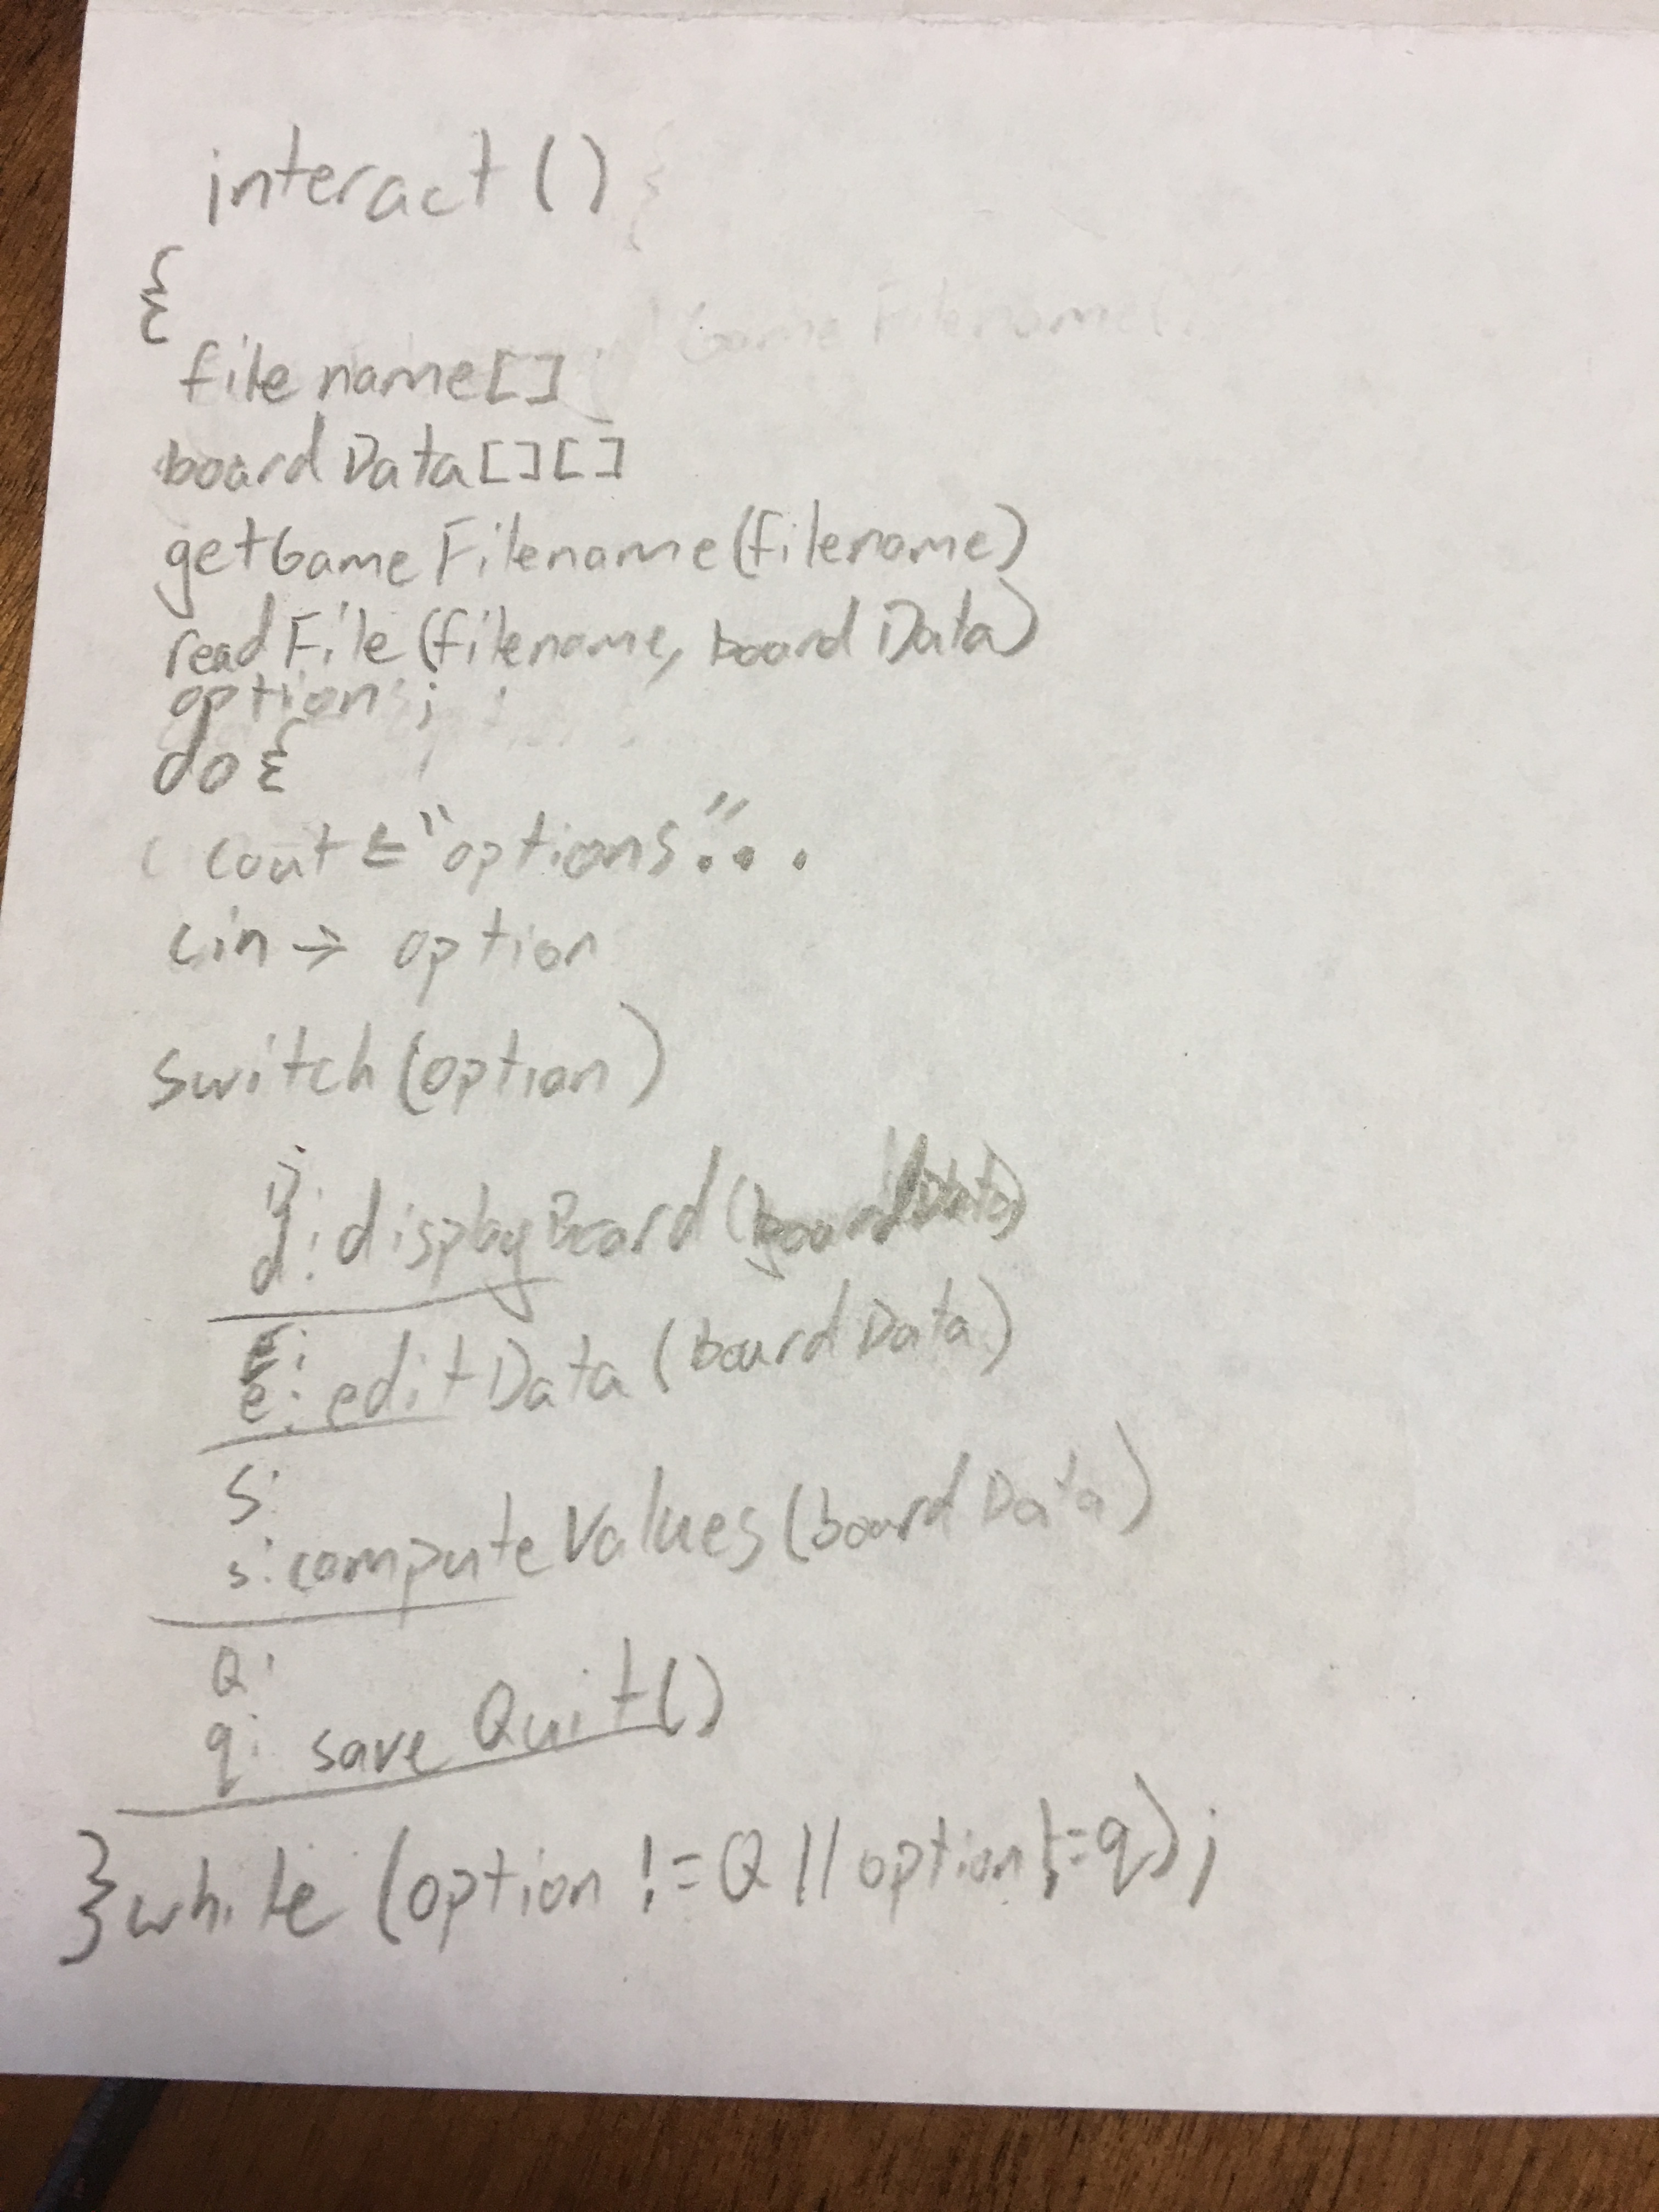 interact ()
{
Game Filename(
filename[]
boardData[][]
getGameFilename(filename)
readFile(filename, boardData)
option;
do {
cout <= "options"...
cin → option
switch (option)
D:
d: displayBoard(boardData)
E:
e: editData (boardData)
S:
s: computeValues (boardData)
Q:
q: saveQuit()
} while (option != Q || option != q);